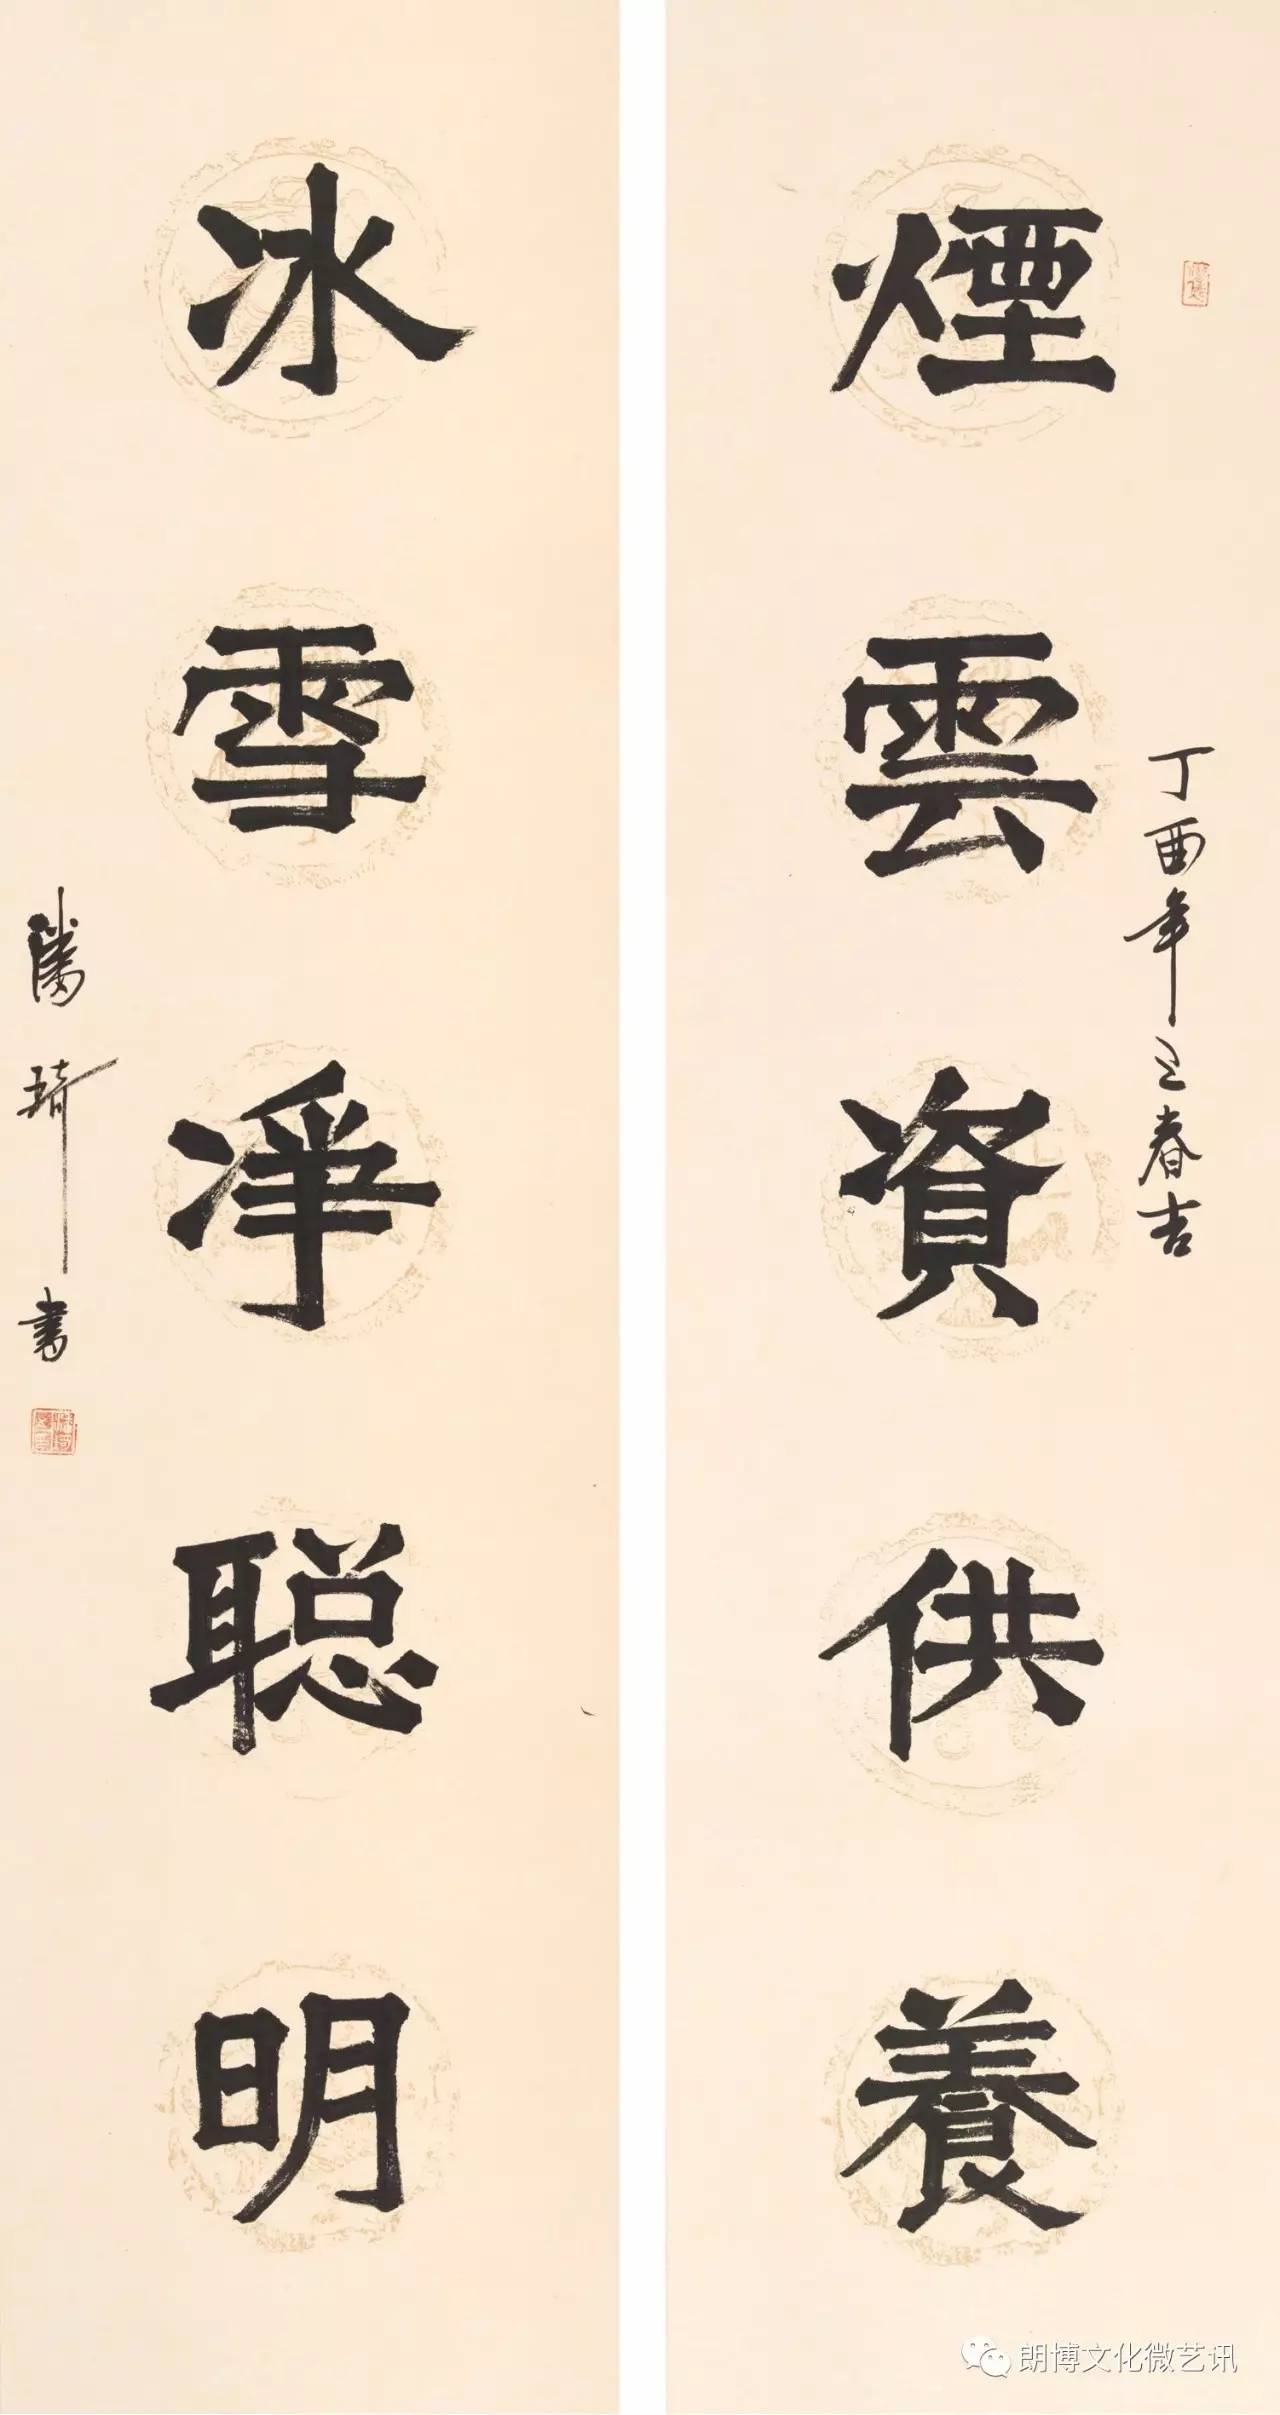 煙雲資供養
丁酉年之春吉
冰雪凈聪明
勝琦書
朗博文化微艺讯